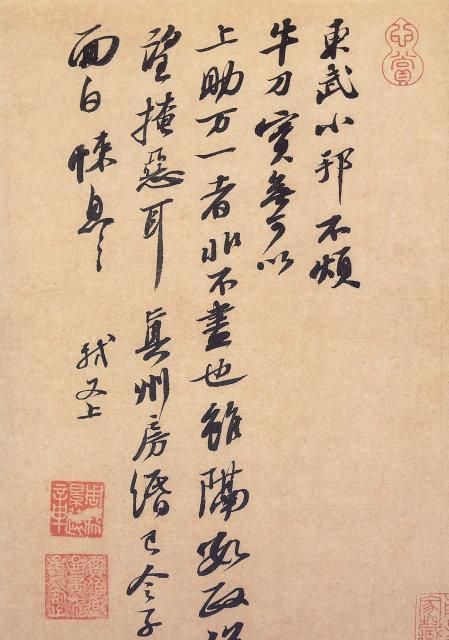 東武小邦不煩
牛刀實無可以
上助万一者非不盡也雖隔數政
望掩惡耳 真州房緡已令子
面白悚息〻
軾又上